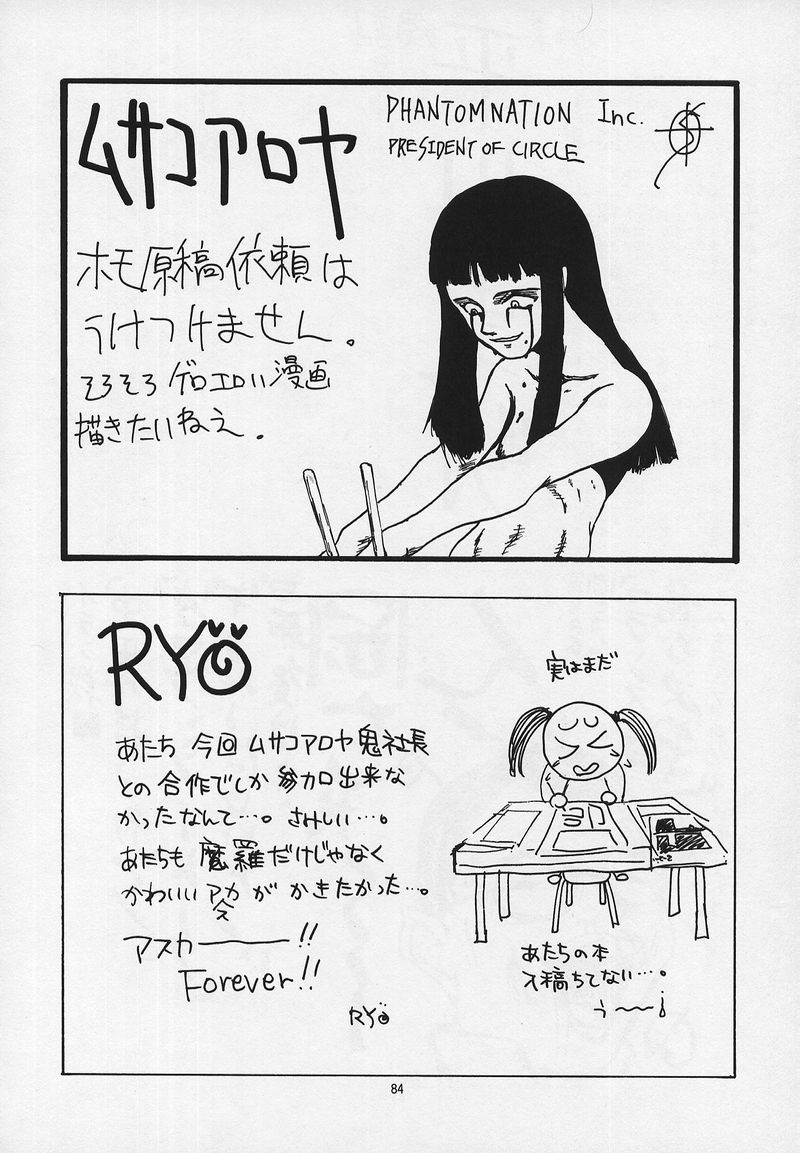 ムサコアロヤ
PHANTOMNATION Inc.
PRESIDENT OF CIRCLE
ホモ原稿依頼は
うけつけません。
そろそろ ゲロエロい漫画
描きたいねえ。
RYO
あたち 今回 ムサコアロヤ鬼社長
との 合作でしか 参加出来な
かったなんて…。さみしい…。
あたちも 魔羅だけじゃなく
かわいい アカ が かきたかった…。
ス
アスカー――!!
Forever!!
RYO
実はまだ
あたちの本
入稿ちてない…。
う〜〜
84